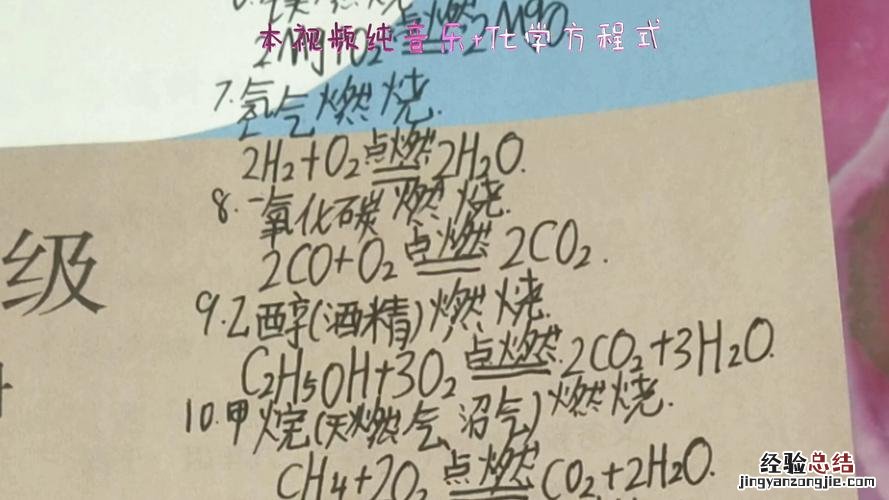 本视频纯音乐+化学方程式
2Mg+O2点燃2MgO
7.氢气燃烧.
2H2+O2点燃2H2O.
8.一氧化碳燃烧.
2CO+O2点燃2CO2.
级
9.乙醇(酒精)燃烧.
C2H5OH+3O2点燃2CO2+3H2O.
10.甲烷(天燃气,沼气)燃烧.
CH4+2O2点燃CO2+2H2O.
经验总结
jingyanzongjie.com